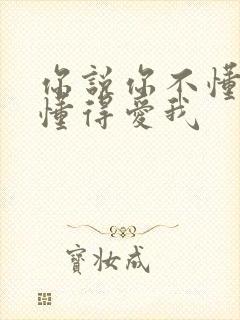 你說你不懂
懂得愛我
寶妝成